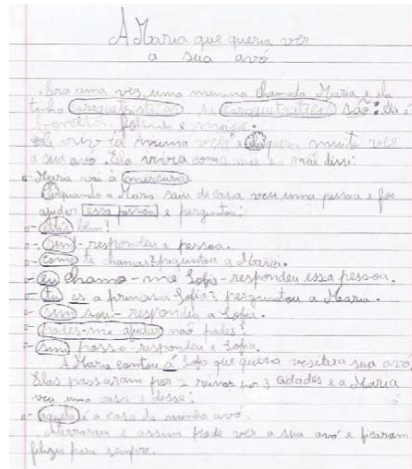 A Maria que queria ver
a sua avó
Era uma vez uma menina chamada Maria e ela
tinha As São: ela é
bonita, e magic.
Ela muito ver
a sua avó. Ela vivia com a mãe e a mãe disse:
- Maria vai à
E quando a Maria saiu de casa veu uma pessoa e foi
ajudar essa pessoa e perguntou:
- Estás bem?
- sim - respondeu a pessoa.
- como te chamas? preguntou a Maria.
- eu chamo-me Sofia - respondeu essa pessoa.
- tu és a princesa Sofia? perguntou a Maria.
- sim sou - respondeu a Sofia.
- podes-me ajudar não podes?
- sim posso - respondeu a Sofia.
A Maria contou á Sofia que queria vesitar a sua avó.
Elas passaram por 2 reinos por 3 cidades e a Maria
veu uma casa e desse:
- aquela é a casa da minha avó.
e assim pode ver a sua avó e ficaram
felizes para sempre.